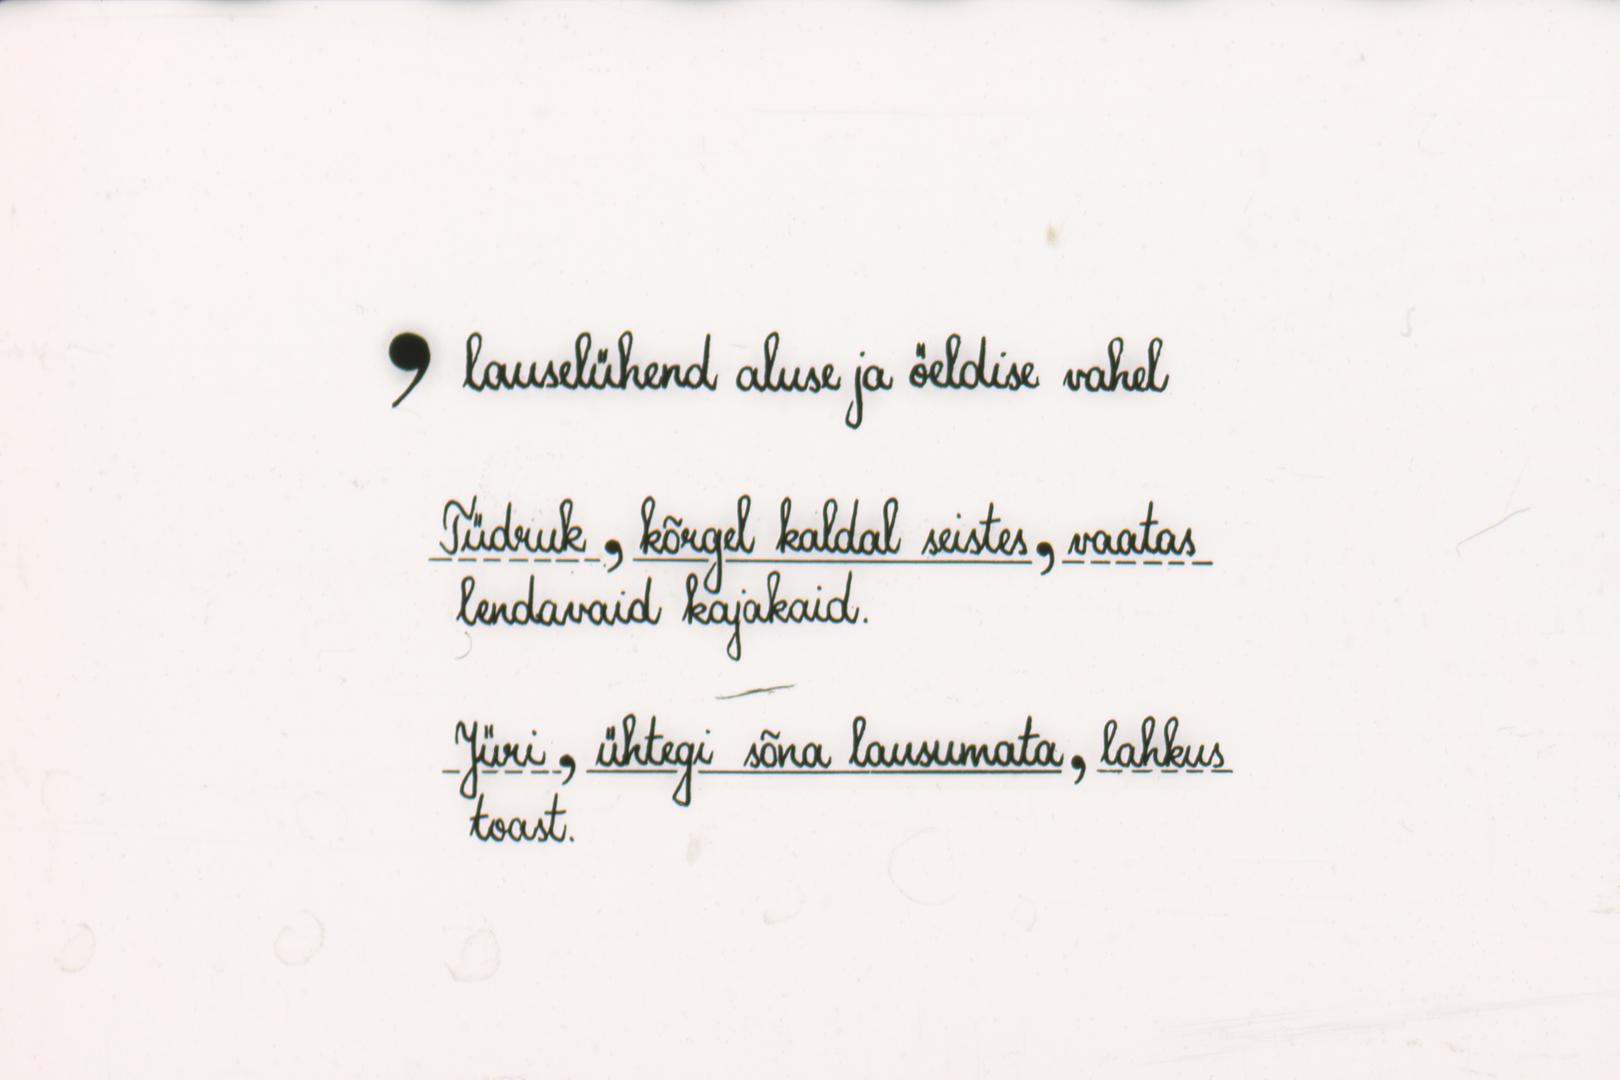 , lauselühend aluse ja öeldise vahel
Tüdruk, kõrgel kaldal seistes, vaatas
lendavaid kajakaid.
Jüri, ühtegi sõna lausumata, lahkus
toast.